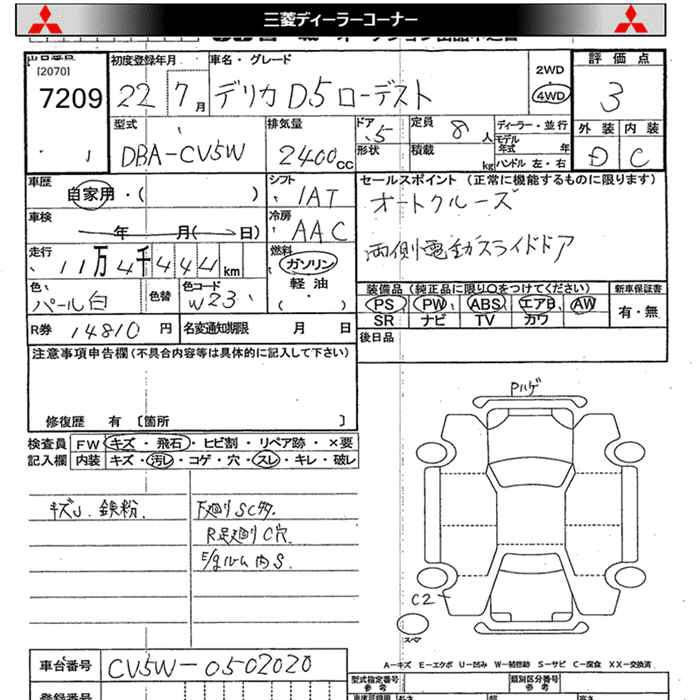 三菱ディーラーコーナー
出品番号
[2070]
7209
初度登録年月
22 7月
車名・グレード
デリカD5ローデスト
2WD
4WD
評価点
3
外装 内装
D C
型式
DBA-CV5W
排気量
2400cc
ドア
5
形状
定員 8 人
積載 kg
ディーラー・並行
モデル
年式 年
ハンドル 左・右
車歴
自家用・( )
シフト
IAT
車検
年 月( 日)
冷房
AAC
走行
11万4千444km
燃料
ガソリン
軽油
( )
色
パール白
色替
色コード
W23
R券 14810円
名変通知期限 月 日
セールスポイント(正常に機能するものに限ります)
オートクルーズ
両側電動スライドドア
装備品(純正品に限り○をつけてください)
PS PW ABS エアB AW
SR ナビ TV カワ
新車保証書
有・無
後日品
注意事項申告欄(不具合内容等は具体的に記入して下さい)
修復歴 有 [箇所 ]
検査員 FW キズ・飛石・ヒビ割・リペア跡・×要
記入欄 内装 キズ・汚レ・コゲ・穴・スレ・キレ・破レ
キズJ. 鉄粉.
下廻りSC多.
R足廻りC穴
E/gルーム内S.
Pハゲ
C2
スペア
A-キズ E-エクボ U-凹み W-補修跡 S-サビ C-腐食 XX-交換済
車台番号 CV5W-0502020
型式指定番号
参考
類別区分番号
参考
登録番号
長さ
幅
高さ